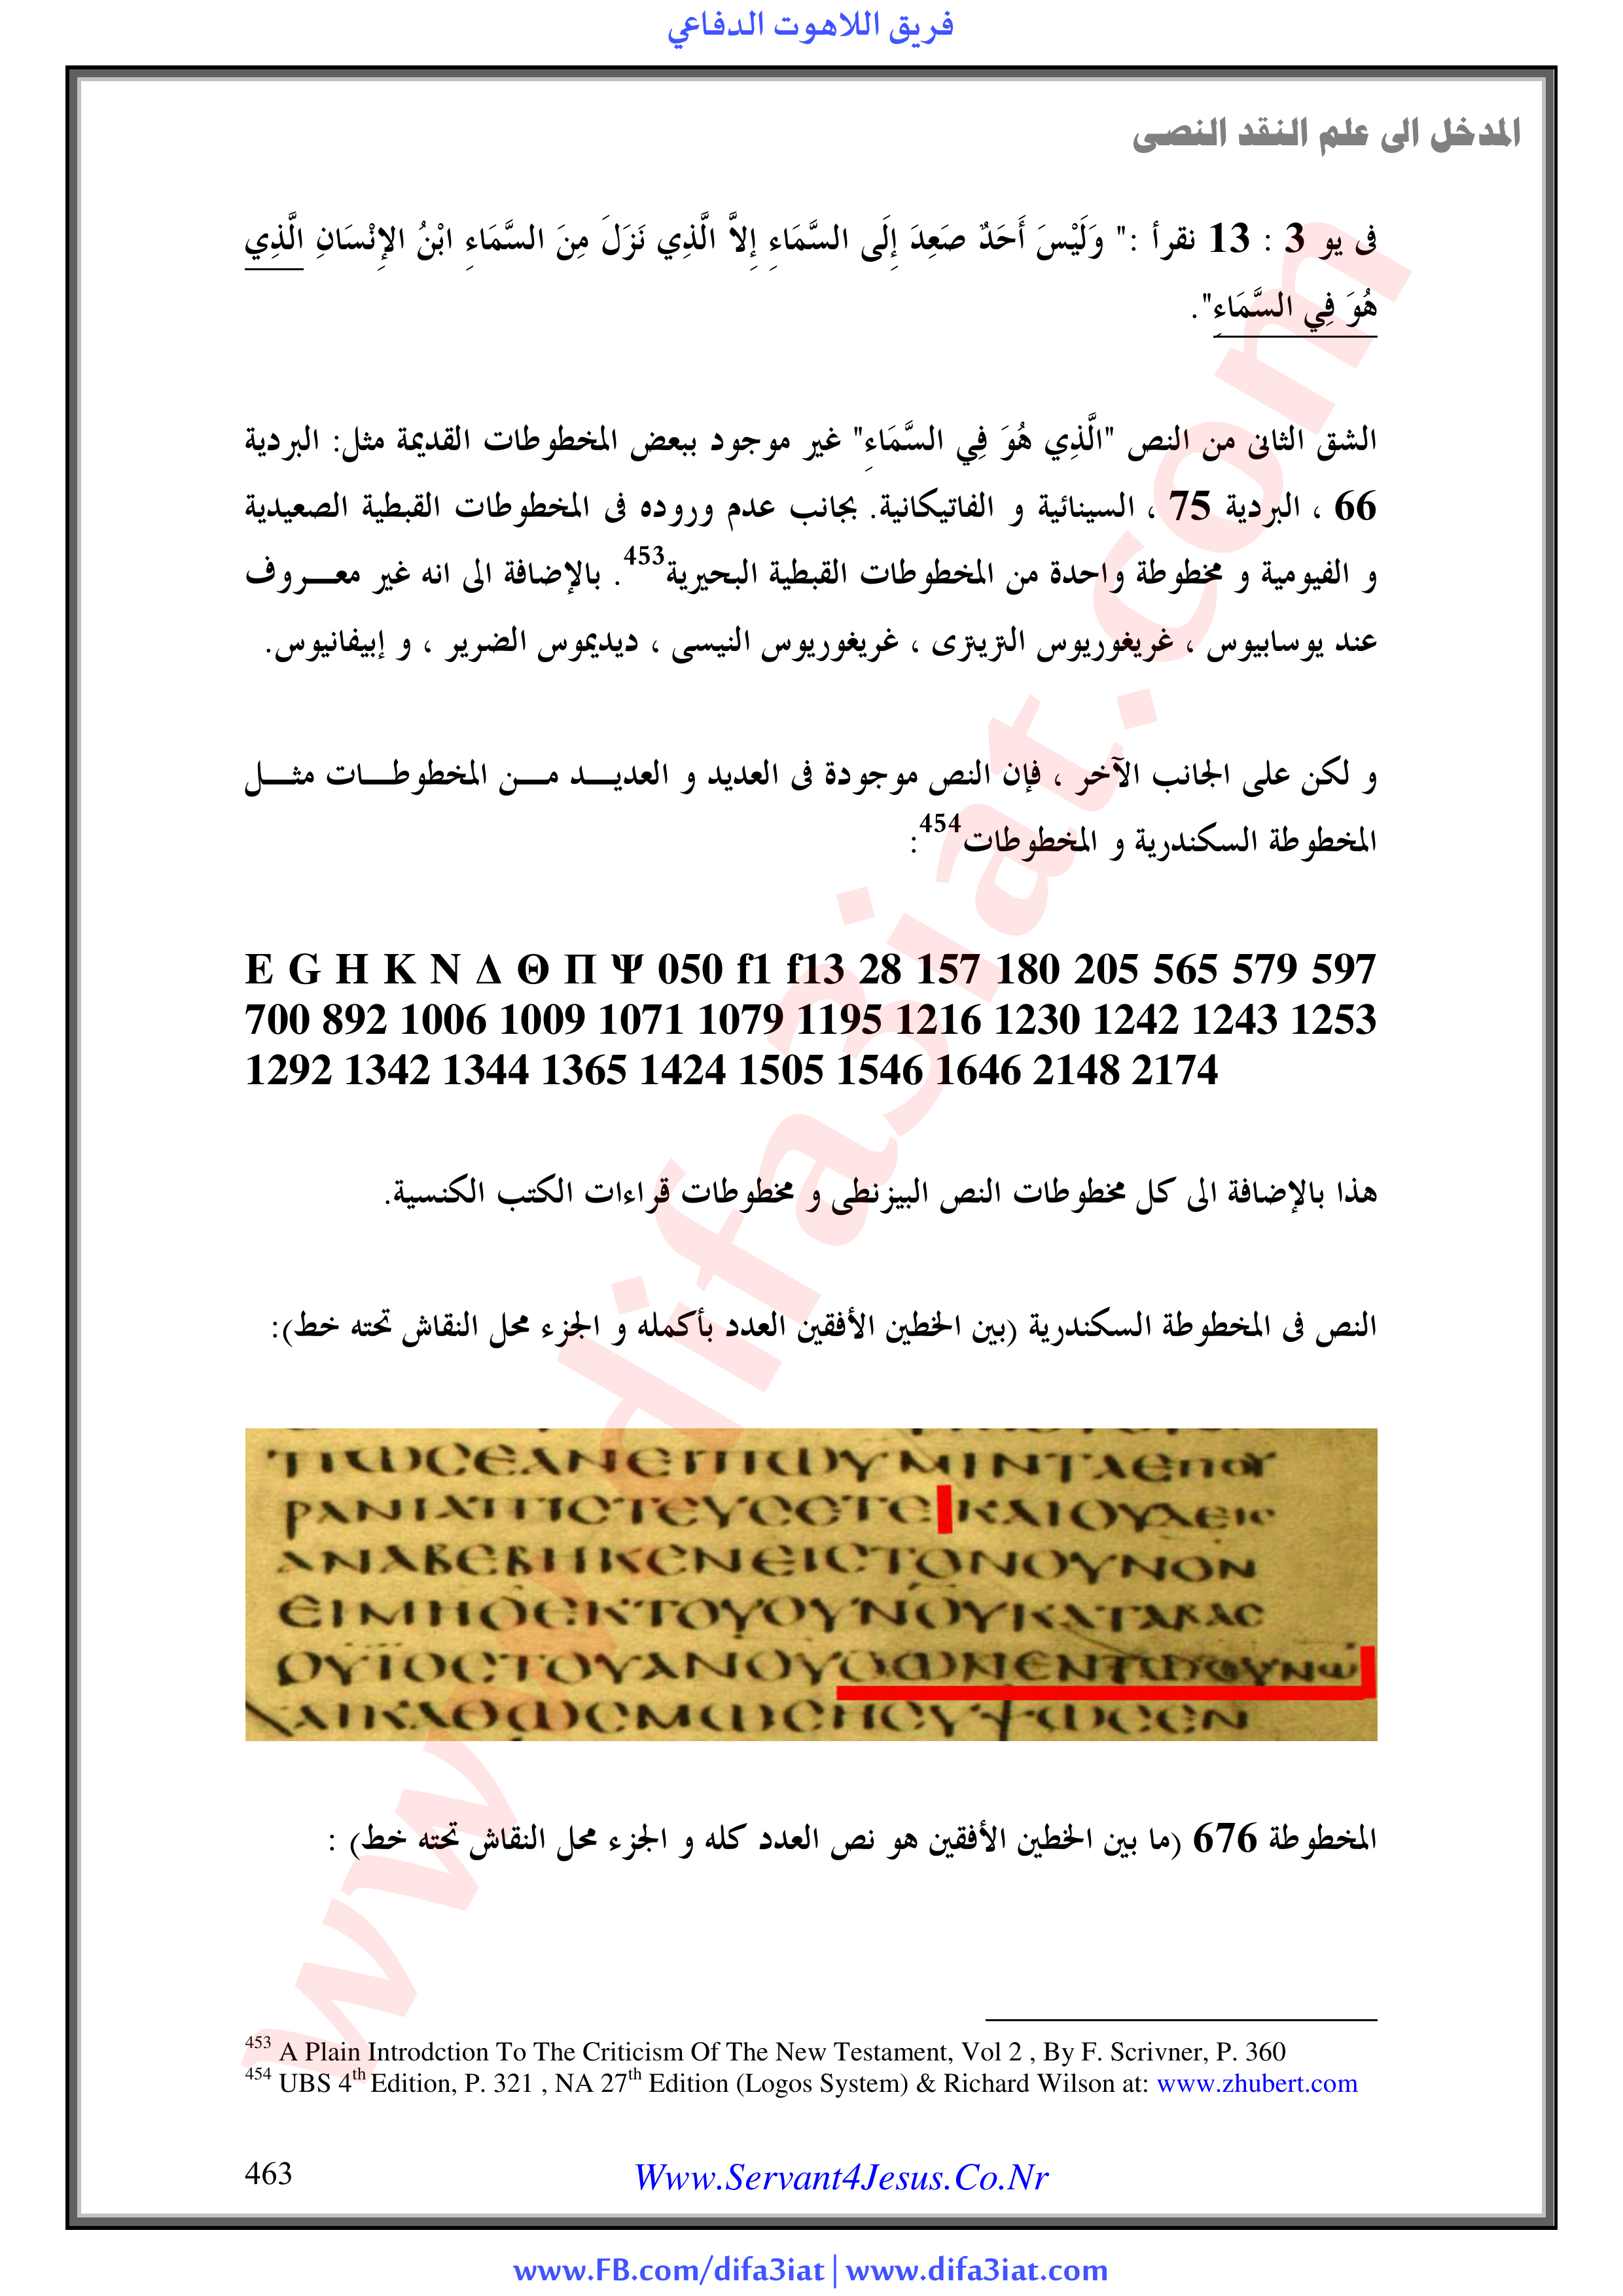 فريق اللاهوت الدفاعي
المدخل الى علم النقد النصى
فى يو 3 : 13 نقرأ :" وَلَيْسَ أَحَدٌ صَعِدَ إِلَى السَّمَاءِ إِلاَّ الَّذِي نَزَلَ مِنَ السَّمَاءِ ابْنُ الإِنْسَانِ الَّذِي
هُوَ فِي السَّمَاءِ".
الشق الثانى من النص "الَّذِي هُوَ فِي السَّمَاءِ" غير موجود ببعض المخطوطات القديمة مثل: البردية
66 ، البردية 75 ، السينائية و الفاتيكانية. بجانب عدم وروده فى المخطوطات القبطية الصعيدية
و الفيومية و مخطوطة واحدة من المخطوطات القبطية البحيرية453. بالإضافة الى انه غير معـــروف
عند يوسابيوس ، غريغوريوس التريترى ، غريغوريوس النيسى ، ديديموس الضرير ، و إبيفانيوس.
و لكن على الجانب الآخر ، فإن النص موجودة فى العديد و العديـــد مـــن المخطوطـــات مثـــل
المخطوطة السكندرية و المخطوطات454:
E G H K N Δ Θ Π Ψ 050 f1 f13 28 157 180 205 565 579 597
700 892 1006 1009 1071 1079 1195 1216 1230 1242 1243 1253
1292 1342 1344 1365 1424 1505 1546 1646 2148 2174
هذا بالإضافة الى كل مخطوطات النص البيزنطى و مخطوطات قراءات الكتب الكنسية.
النص فى المخطوطة السكندرية (بين الخطين الأفقين العدد بأكمله و الجزء محل النقاش تحته خط):
ΠΩCΕΑΝΕΙΠΩΥΜΙΝΤΑΕΠΟΥ
ΡΑΝΙΑΠΙCΤΕΥCΕΤΕ ΚΑΙΟΥΔΕΙC
ΑΝΑΒΕΒΗΚΕΝΕΙCΤΟΝΟΥΝΟΝ
ΕΙΜΗΟΕΚΤΟΥΟΥΝΟΥΚΑΤΑΒΑC
ΟΥΙΟCΤΟΥΑΝΟΥΟΩΝΕΝΤΩΟΥΝΩ
ΚΑΙΚΑΘΩCΜΩCΗCΥΨΩCΕΝ
المخطوطة 676 (ما بين الخطين الأفقين هو نص العدد كله و الجزء محل النقاش تحته خط) :
453 A Plain Introdction To The Criticism Of The New Testament, Vol 2 , By F. Scrivner, P. 360
454 UBS 4th Edition, P. 321 , NA 27th Edition (Logos System) & Richard Wilson at: www.zhubert.com
463
Www.Servant4Jesus.Co.Nr
www.FB.com/difa3iat | www.difa3iat.com
www.difa3iat.com